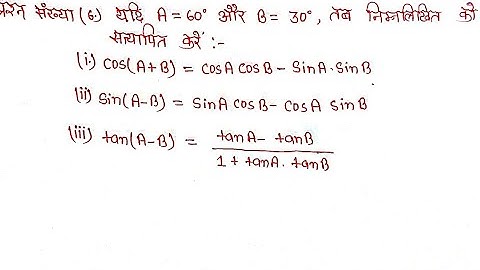 प्रश्न संख्या (6.) यदि A = 60° और B = 30°, तब निम्नलिखित को
सत्यापित करें :-
(i.) cos(A+B) = cosA cosB - sinA. sinB
(ii) sin(A-B) = sinA cosB - cosA sinB
(iii) tan(A-B) = tanA - tanB
1 + tanA. tanB